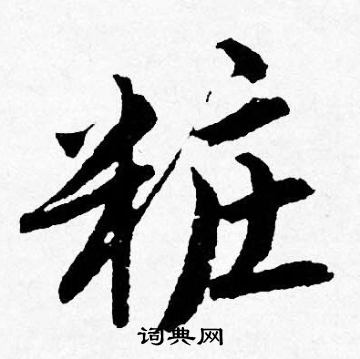 粧
词典网